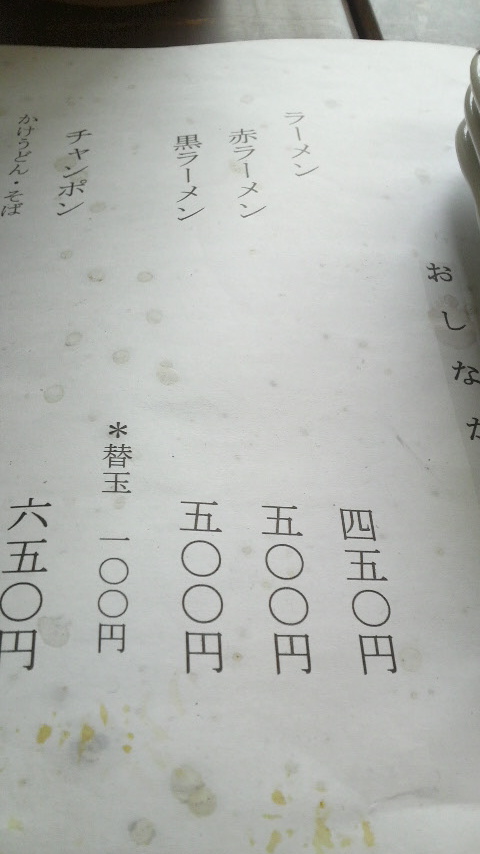 おしなが
ラーメン 四五〇円
赤ラーメン 五〇〇円
黒ラーメン 五〇〇円
＊替玉 一〇〇円
チャンポン 六五〇円
かけうどん・そば